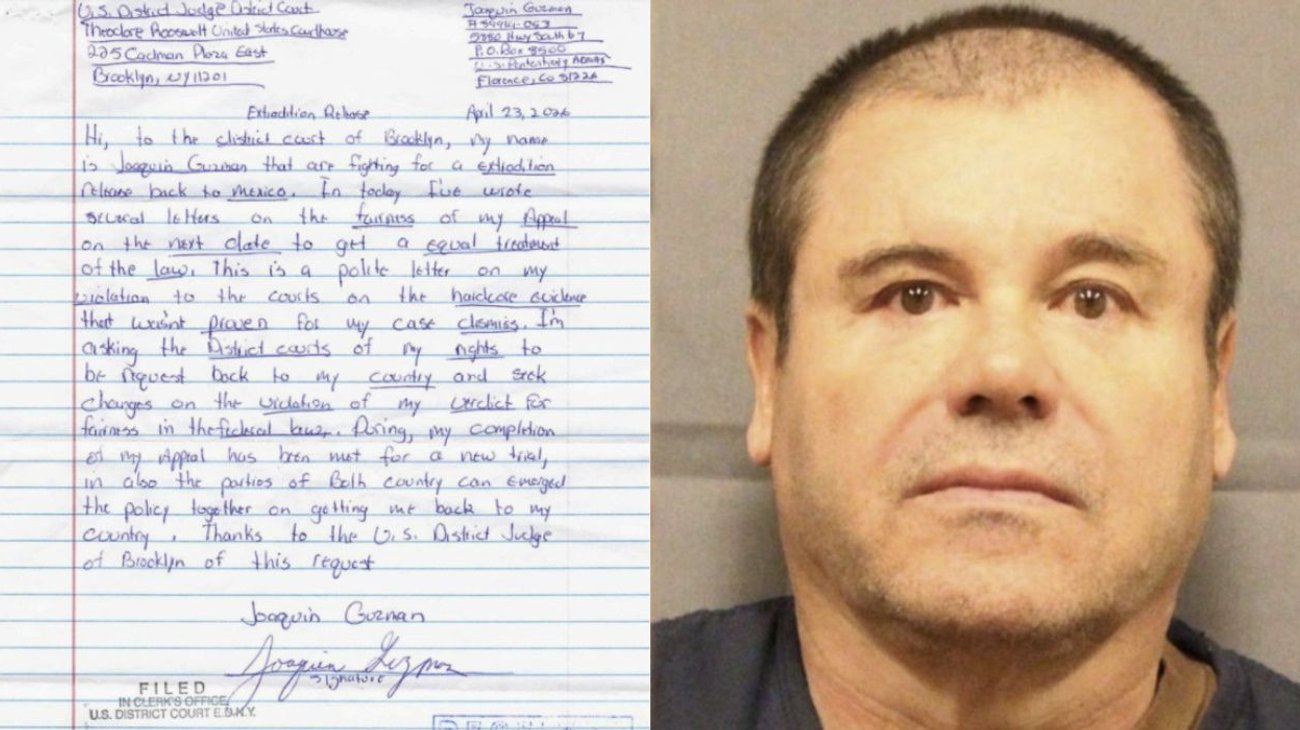 U.S. District Judge District Court
Theodore Roosvelt United States Courthouse
225 Cadman Plaza East
Brooklyn, NY 11201
Joaquin Guzman
5880 Hwy South 67
P.O. Box 8500
U.S. Penitentiary ADMAX
Florence, Co 81226
Extradition Release April 23, 2026
Hi, to the district court of Brooklyn, my name
is Joaquin Guzman that are fighting for a extradition
release back to mexico. In today I've wrote
several letters on the fairness of my Appeal
on the next date to get a equal treatment
of the law. This is a polite letter on my
violation to the courts on the hardcore evidence
that wasn't proven for my case dismiss. I'm
asking the District courts of my rights to
be request back to my country and seek
changes on the violation of my verdict for
fairness in the federal laws. During, my completion
of my Appeal has been met for a new trial,
in also the parties of Both country can emerged
the policy together on getting me back to my
country. Thanks to the U.S. District Judge
of Brooklyn of this request
Joaquin Guzman
Joaquin Guzman
Signature
FILED
IN CLERK'S OFFICE
U.S. DISTRICT COURT E.D.N.Y.